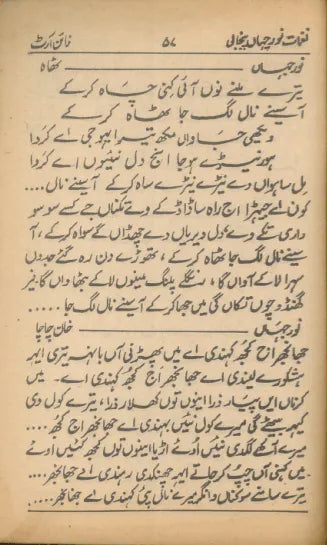 نغمات نورجہاں پنجابی ۵۷ فائن آرٹ
نورجہاں ٹھاہ
تیرے ملنے نوں آئی کنی چاہ کر کے
آ سینے نال لگ جا ٹھاہ کر کے
ویکھی جاواں مکھ تیرا ایہو جی اے کردا
ہور نیڑے ہو جا انج دل نئیوں اے کردا
مل ساہواں دے نیڑے نیڑے ساہ کر کے آ سینے نال....
کون اے جیہڑا اج راہ ساڈا ڈکے وے تکناں جے کسے سو سو
واری تکے وے دل ویریاں دے چھڈاں گے سواہ کر کے، آ
سینے نال لگ جا ٹھاہ کر کے، تھوڑے دن رہ گئے جدوں
سہرا لا کے آواں گا، رنگلے پلنگ مینوں لا کے بٹھاواں گا نیر
گھنڈ وچوں تکاں گی میں جھا کر کے آ سینے نال لگ جا.....
نورجہاں خان چاچا
جھانجھر اج کجھ کہندی اے میں چھیڑنی آں بانہہ تیری ایہہ
ہشکورے لیندی اے جھانجھر اج کجھ کہندی اے۔ میں
کرناں ایں پیار ذرا اینوں توں کھلار ذرا، تیرے کول دی
کیہہ سینے گی میرے کول نئیں بہندی اے جھانجھر اج کجھ....
میرے آکھے لگدی نئیں اوئے اڑیا اینوں توں کجھ کئیں اوئے
میں کہنی آں چپ کر جا تے ایہہ چھنکدی رہندی اے جھانجھر...
تیرے سامنے سوکناں وانگر میرے نال پئی کھہندی اے جھانجھر....